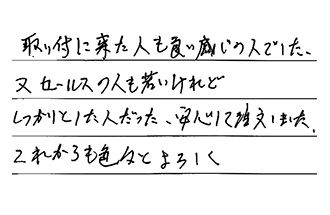 取り付に来た人も良い感じの人でした、
又セールスの人も若いけれど
しっかりとした人だった、安心して注文しました。
これからも色々とよろしく